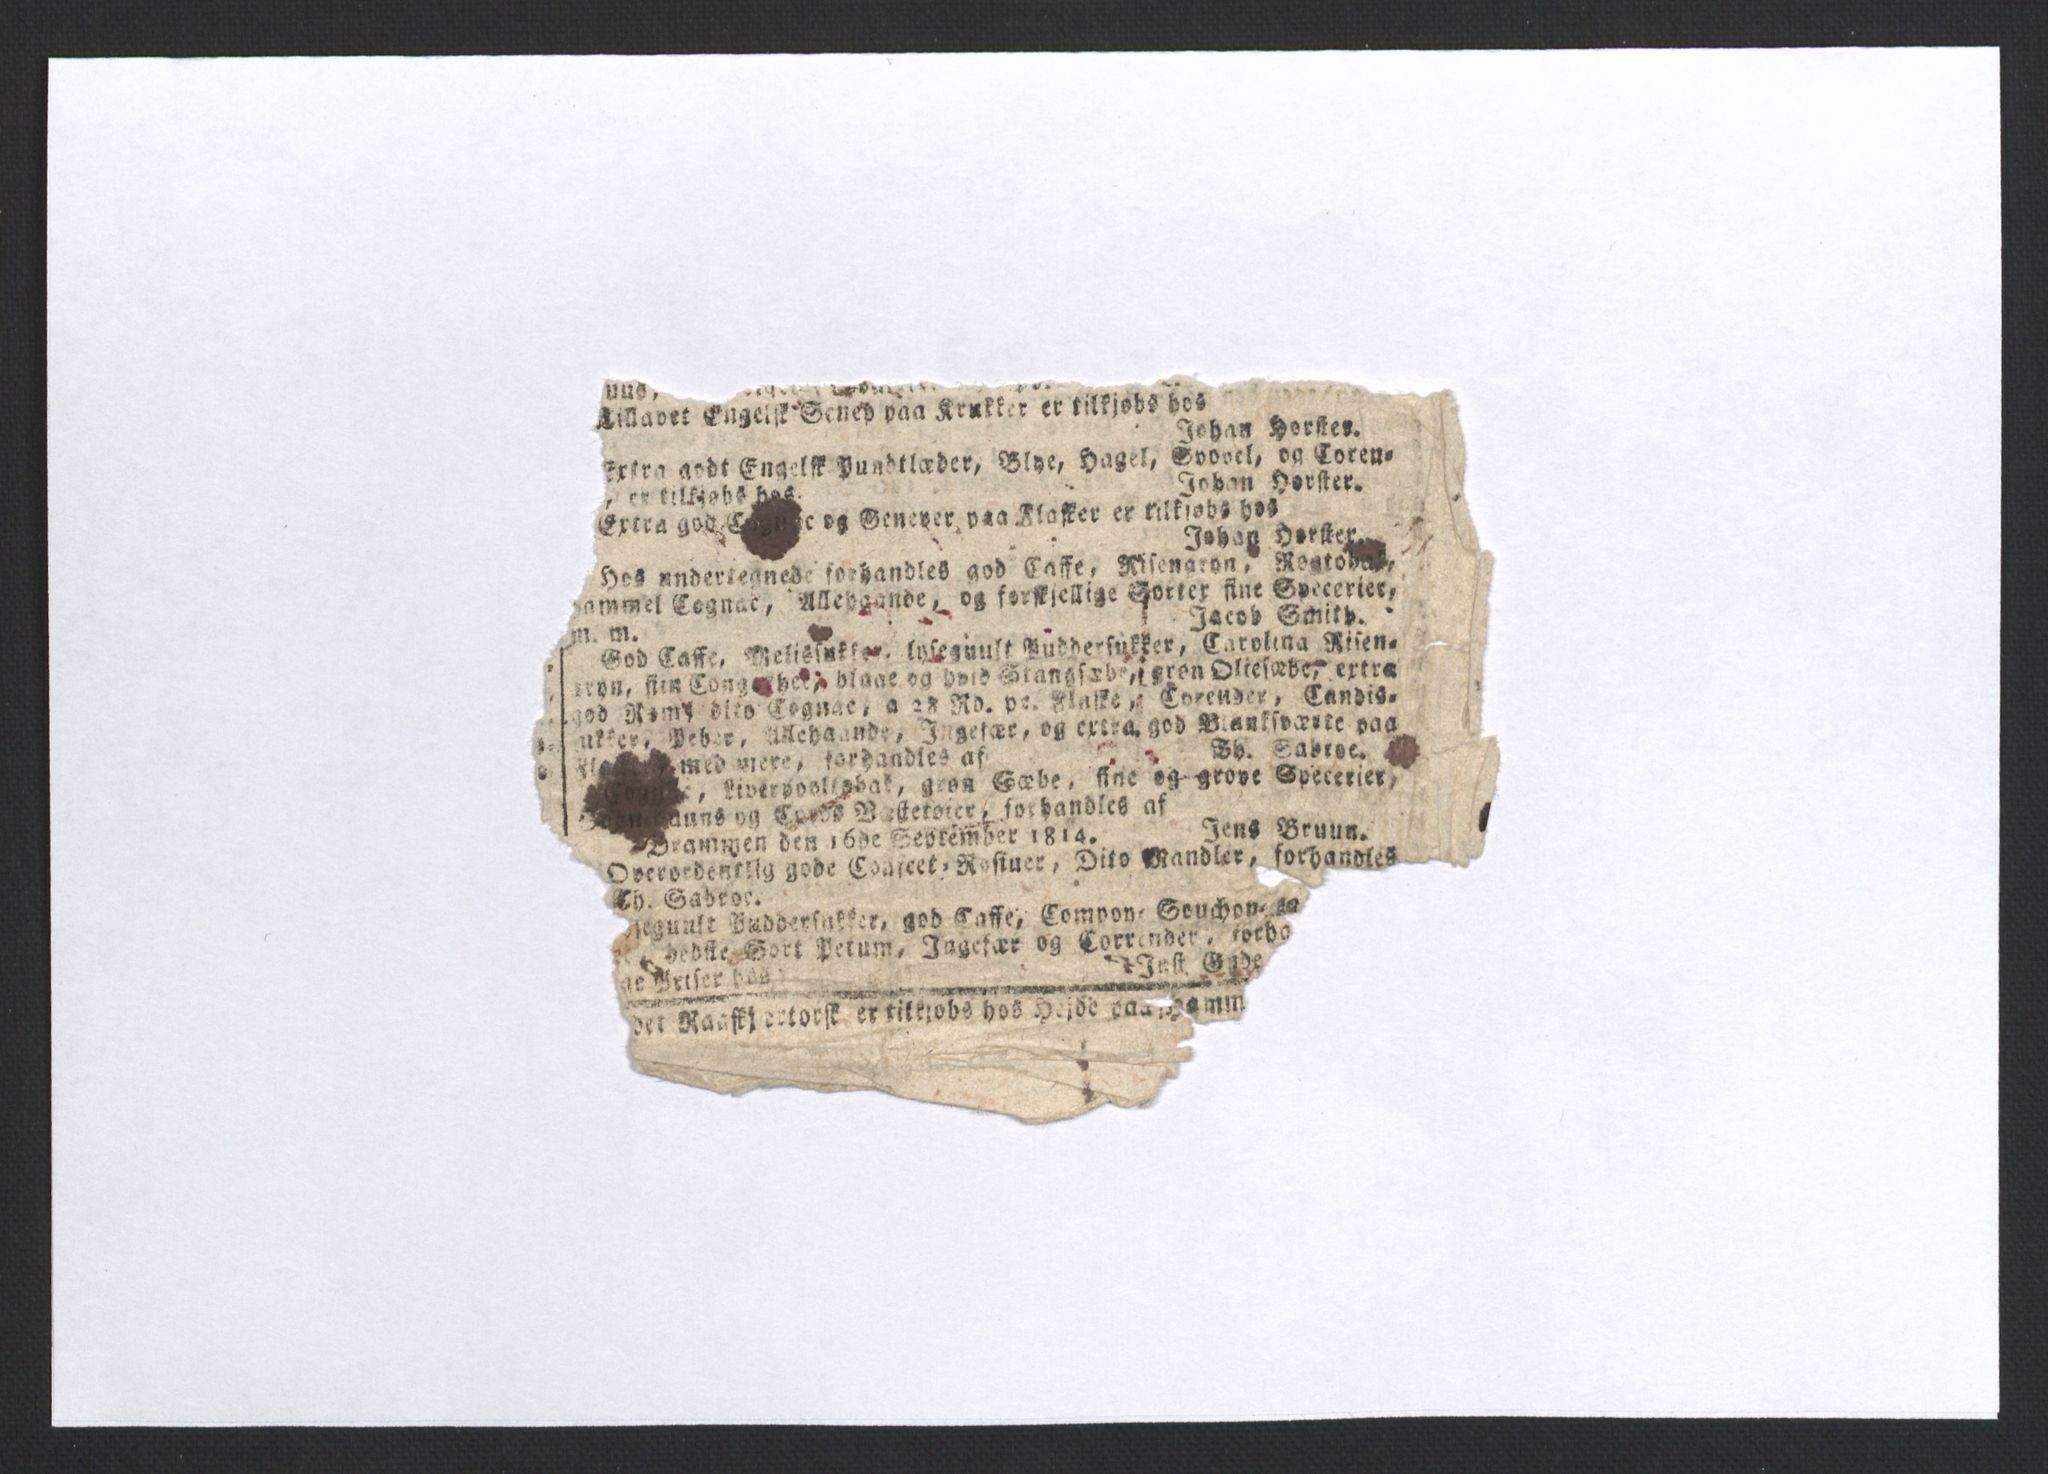 uus,
Tillavet Engelsk Senep paa Krukker er tilkjøbs hos
Johan Hørster.
Extra godt Engelsk Pundtlæder, Blye, Hagel, Svovel, og Coren-
, er tilkjøbs hos
Johan Hørster.
Extra god Cognac og Genever paa Flasker er tilkjøbs hos
Johan Hørster.
Hos undertegnede forhandles god Caffe, Risengryn, Røgtobak,
gammel Cognac, Allehaande, og forskjellige Sorter fine Specerier,
m. m.
Jacob Smith.
God Caffe, Melissukker, lyseguult Puddersukker, Carolina Risen-
gryn, fiin Congothee, blaae og hvid Stangsæbe, grøn Oliesæbe, extra
god Rom, dito Cognac, a 28 Rd. pr. Flaske, Corender, Candis-
sukker, Peber, Allehaande, Ingefær, og extra god Blanksværte paa
med mere, forhandles af
Th. Sabroe.
Cognac, Liverpooltobak, grøn Sæbe, fine og grove Specerier,
og Cords Vesterøier, forhandles af
Drammen den 16de September 1814.
Jens Bruun.
Overordentlig gode Confect-Rosiner, Dito Mandler, forhandles
Th. Sabroe.
lyseguult Puddersukker, god Caffe, Compon- Souchon-
bedste Sort Petum, Ingefær og Corrender, forha
Just Gude
ge Priser hos
det Raaskjertorsk er tilkjøbs hos Hejde paa